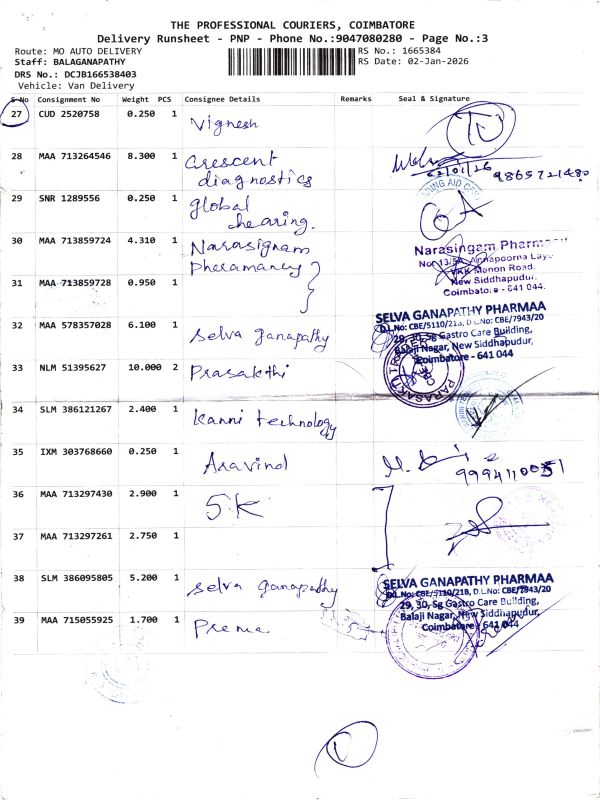 THE PROFESSIONAL COURIERS, COIMBATORE
Delivery Runsheet - PNP - Phone No.:9047080280 - Page No.:3
Route: MO AUTO DELIVERY
RS No.: 1665384
Staff: BALAGANAPATHY
RS Date: 02-Jan-2026
DRS No.: DCJB166538403
Vehicle: Van Delivery
S No Consignment No Weight PCS Consignee Details Remarks Seal & Signature
27 CUD 2520758 0.250 1 Vignesh
28 MAA 713264546 8.300 1 Crescent
diagnostics
02/01/26
9865721480
29 SNR 1289556 0.250 1 global
hearing.
30 MAA 713859724 4.310 1 Narasignam
Pharamancy
Narasingam Pharmacy
Annapoorna Layout
VKK Menon Road,
New Siddhapudur,
Coimbatore - 641 044.
31 MAA 713859728 0.950 1
32 MAA 578357028 6.100 1 Selva ganapathy
SELVA GANAPATHY PHARMAA
D.L.No: CBE/5110/21B, D.L.No: CBE/7943/20
29, 30, Sg Gastro Care Building,
Balaji Nagar, New Siddhapudur,
Coimbatore - 641 044
33 NLM 51395627 10.000 2 Prasakthi
34 SLM 386121267 2.400 1 Kanni technology
35 IXM 303768660 0.250 1 Aravind
9994110051
36 MAA 713297430 2.900 1 5K
37 MAA 713297261 2.750 1
38 SLM 386095805 5.200 1 Selva ganapathy
SELVA GANAPATHY PHARMAA
D.L.No: CBE/5110/21B, D.L.No: CBE/7943/20
29, 30, Sg Gastro Care Building,
Balaji Nagar, New Siddhapudur,
Coimbatore - 641 044
39 MAA 715055925 1.700 1 Prema